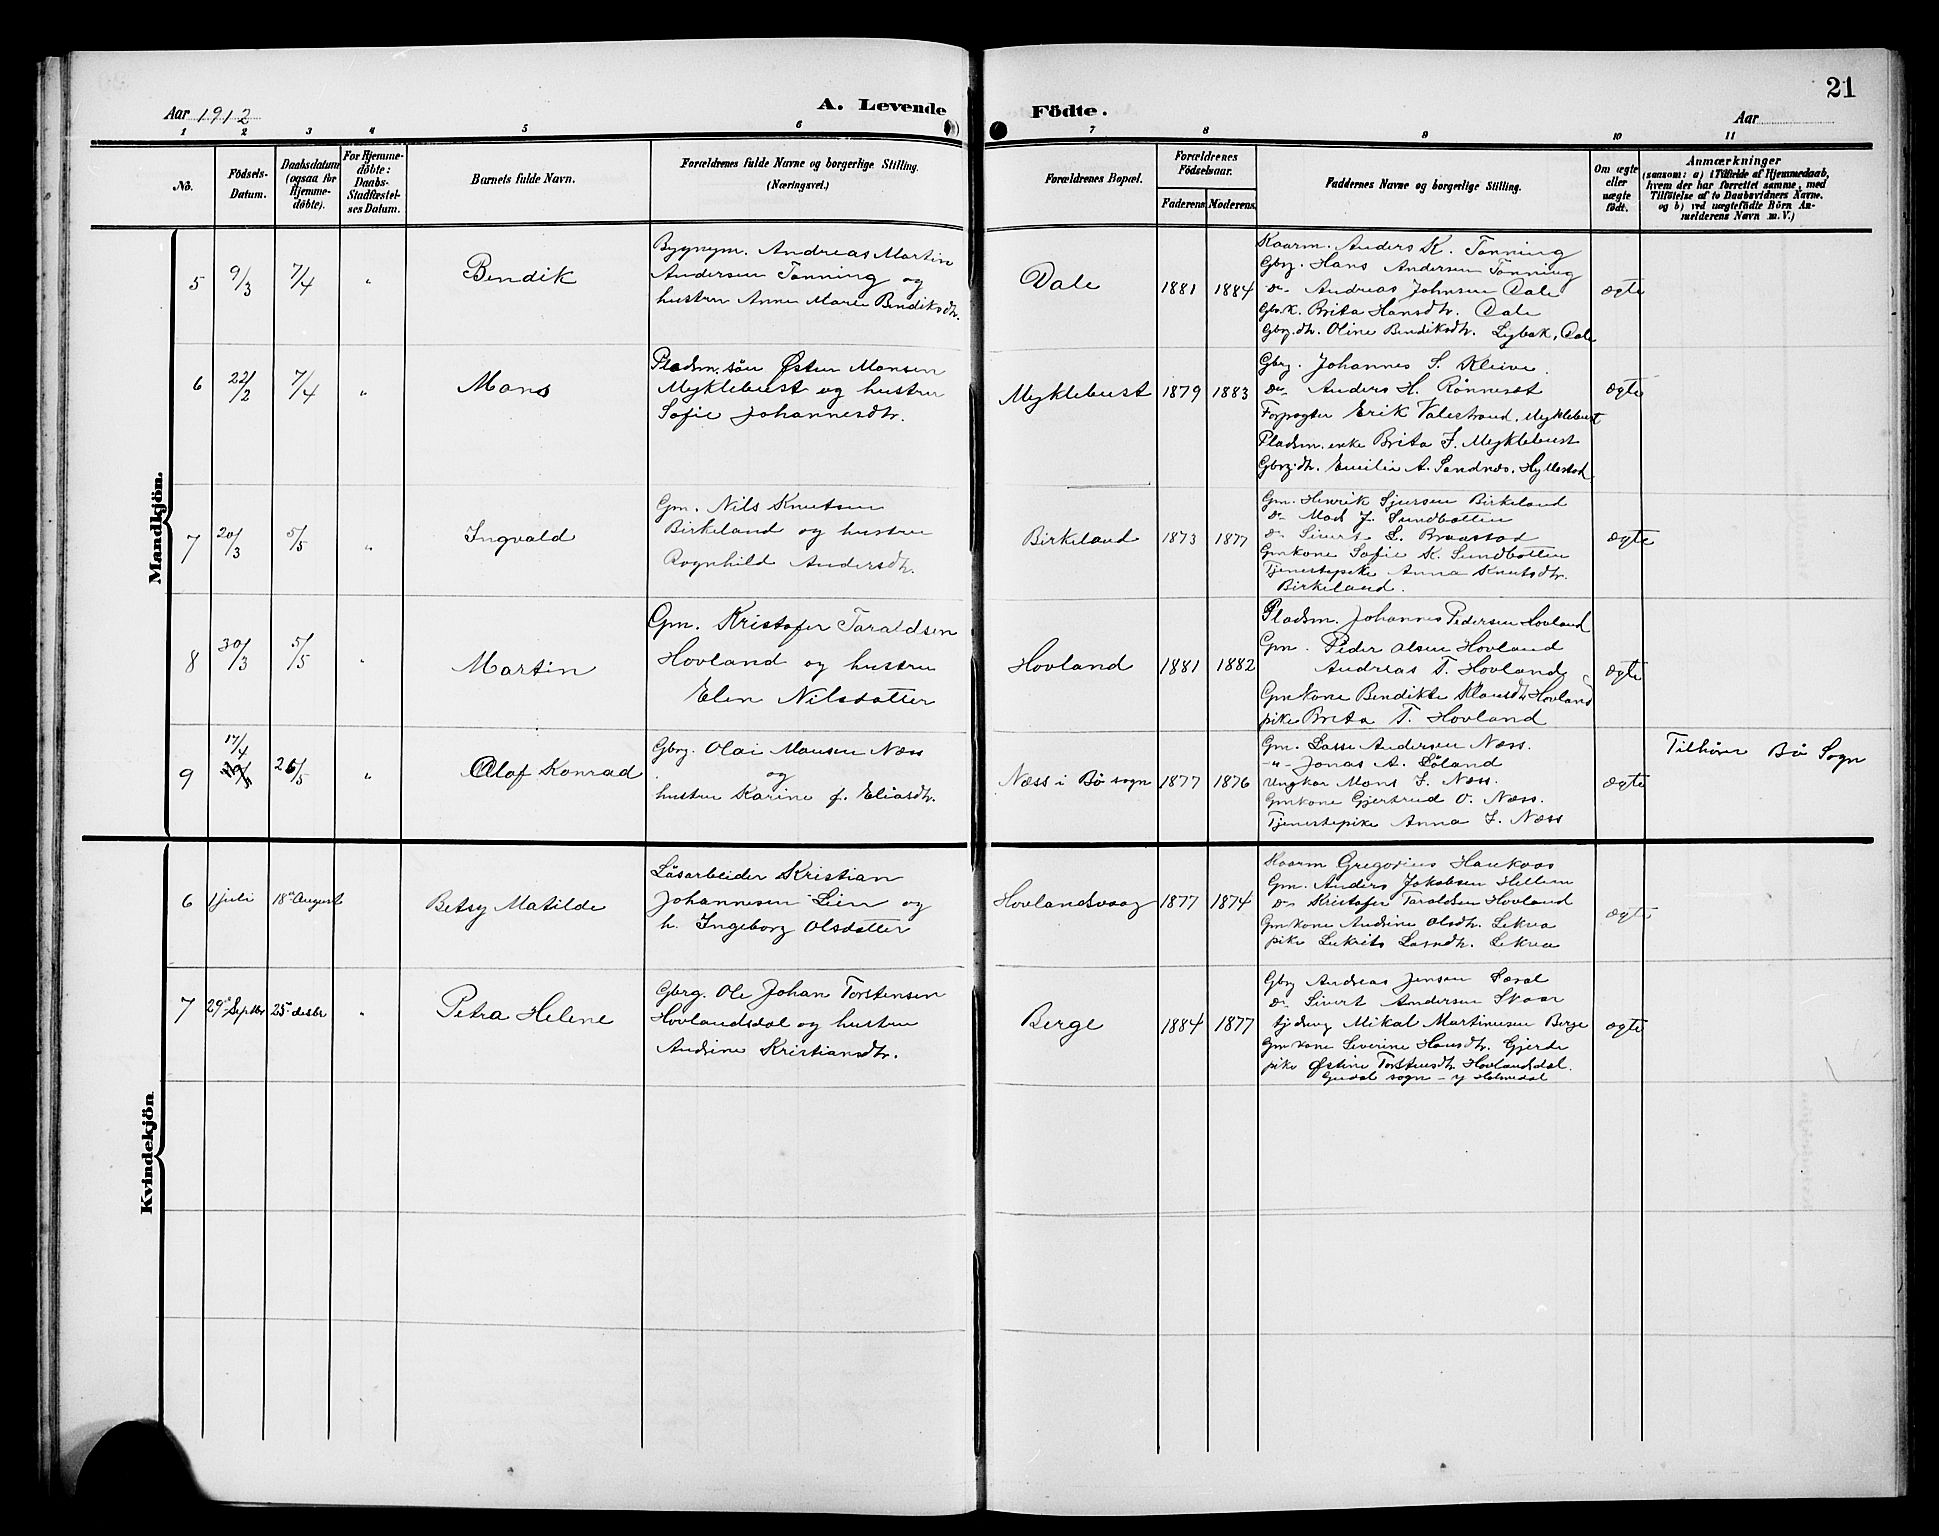 21
Aar 1912
A. Levende Födte.
Aar
1 2 3 4 5 6 7 8 9 10 11
No.
Födsels-
Datum.
Daabsdatum
(ogsaa for
Hjemme-
döbte).
For Hjemme-
döbte:
Daabs-
Stadfæstel-
ses Datum.
Barnets fulde Navn.
Forældrenes fulde Navne og borgerlige Stilling.
(Næringsvei.)
Forældrenes Bopæl.
Forældrenes
Födselsaar.
Faderens. Moderens.
Faddernes Navne og borgerlige Stilling.
Om ægte
eller
uægte
født.
Anmærkninger
(saasom: a) i Tilfælde af Hjemmedaab,
hvem der har forrettet samme, med
Tilföielse af to Daabsvidners Navne.
og b) ved uægtefödte Börn An-
melderens Navn m. V.)
Mandkjön.
5 9/3 7/4 " Bendik
Bygnym. Andreas Martin
Andersen Tonning og
hustru Anne Marie Bendiksdtr.
Dale 1881 1884
Kaarm. Anders K. Tonning
Gbrg. Hans Andersen Tonning
Do Andreas Johnsen Dale
Gbr.k. Brita Hansdtr. Dale
Gbrg.dtr. Oline Bendiksdtr. Lybak, Dale
ægte
6 22/2 7/4 " Mons
Pladsm. sön Østen Monsen
Myklebust og hustru
Sofie Johannesdtr.
Myklebust 1879 1883
Gbrg. Johannes S. Kleive.
Do Anders H. Rönneset
Forpagter Erik Valestrand, Myklebust
Pladsm. enke Brita J. Myklebust
Gbrg.dtr. Emilie A. Sandnes, Hyllestad
ægte
7 20/3 5/5 " Ingvald
Gm. Nils Knutsen
Birkeland og hustru
Ragnhild Andersdtr.
Birkeland 1873 1877
Gm. Henrik Sjursen Birkeland
Do Mads J. Sundbotten
Do Sivert L. Braastad
Gmkone Sofie K. Sundbotten
Tjenestepike Anna Knutsdtr.
Birkeland.
ægte
8 30/3 5/5 " Martin
Gm. Kristofer Taraldsen
Hovland og hustru
Elen Nilsdatter
Hovland 1881 1882
Pladsm. Johannes Pedersen Hovland
Gm. Peder Olsen Hovland
Andreas T. Hovland
Gmkone Bendikte Klausdtr Hovland
pike Brita T. Hovland
ægte
9 17/4 26/5 " Olaf Konrad
Gbrg. Olai Monsen Næss
og
hustru Karine f. Eliasdtr.
Næss i Bö sogn 1877 1876
Gm. Lasse Andersen Næss.
-"- Jonas A. Söland
Ungkar Mons J. Næss.
Gmkone Gjertrud O. Næss.
Tjenestepike Anna J. Næss
ægte
Tilhörer Bö Sogn
Kvindekjön.
6 1 juli 18de August Betsy Matilde
Lösarbeider Kristian
Johannesen Lien og
h. Ingeborg Olsdatter
Hovlandsvaag 1877 1874
Kaarm Gregorius Haukaas
Gm. Anders Jakobsen Hellem
Do Kristofer Taraldsen Hovland
Gmkone Andrine Olsdtr. Lekva
pike Lassedtr. Lekva
ægte
7 29de Septbr 25de desbr " Petra Helene
Gbrg. Ole Johan Torstensen
Hovlandsdal og hustru
Andrine Kristiansdtr.
Berge 1884 1877
Gbrg Andreas Jensen
Do Sivert Andersen Skaar
Mikal Martinusen Berge
Gmkone Severine Hansdtr. Gjerde
pike Østine Torstensdtr Hovlandsdal.
Gudal sogn - y Holmedal
ægte